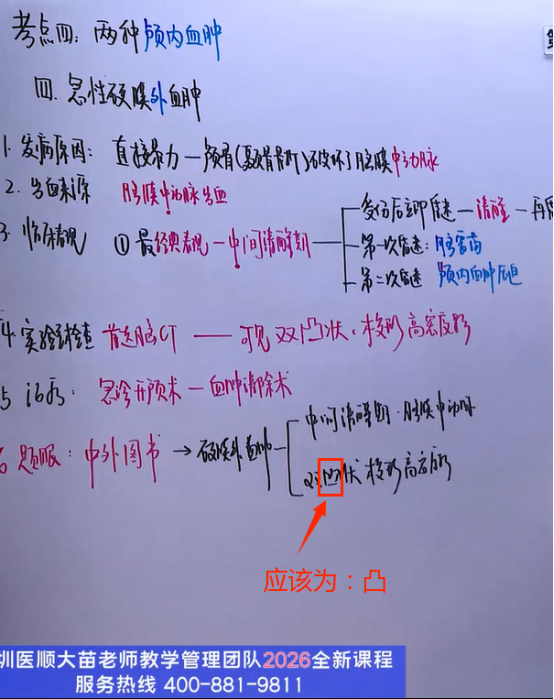 考点四：两种颅内血肿
四．急性硬膜外血肿
1. 发病原因：直接暴力—颅骨(颞骨骨折)破坏了脑膜中动脉
2. 出血来源 脑膜中动脉出血
3. 临床表现 ① 最经典表现—中间清醒期
受伤后立即昏迷—清醒—再
第一次昏迷：脑震荡
第二次昏迷 颅内血肿压迫
4. 实验室检查 首选脑CT——可见双凸状．梭形高密度影
5 治疗：急诊开颅术—血肿清除术
6 题眼：中外图书→硬膜外血肿
中间清醒期．脑膜中动脉
双凹状 梭形高密度影
应该为：凸
圳医顺大苗老师教学管理团队2026全新课程
服务热线 400-881-9811